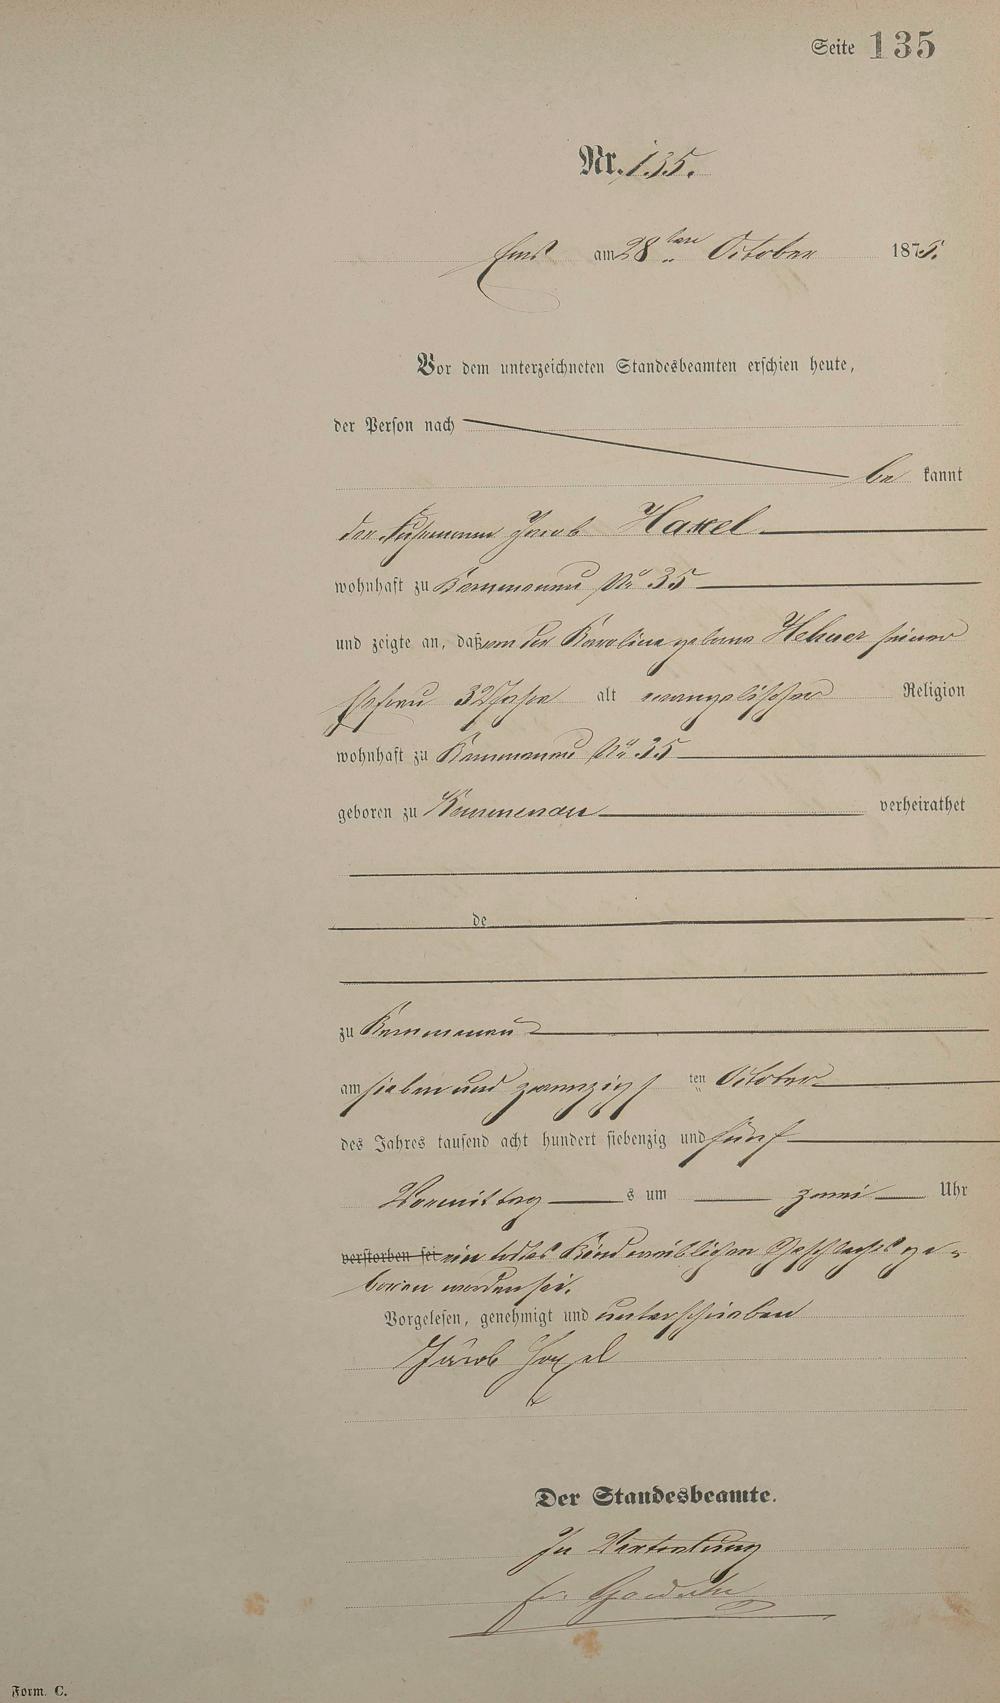 Seite 135
Nr. 135.
Ems am 28 ten October 1875.
Vor dem unterzeichneten Standesbeamten erschien heute,
der Person nach
be kannt
der Jacob Haxel
wohnhaft zu Kemmenau No 35
und zeigte an, daß von der Karoline geborne Hehner seiner
Ehefrau 32 Jahre alt evangelischer Religion
wohnhaft zu Kemmenau No 35
geboren zu Kemmenau verheirathet
de
zu Kemmenau
am sieben und zwanzigs ten October
des Jahres tausend acht hundert siebenzig und fünf
Vormittag s um zwei Uhr
verstorben sei ein todtes Kind weiblichen Geschlechts ge-
boren worden sei.
Vorgelesen, genehmigt und unterschrieben
Jacob Haxel
Der Standesbeamte.
In Vertretung
Form. C.